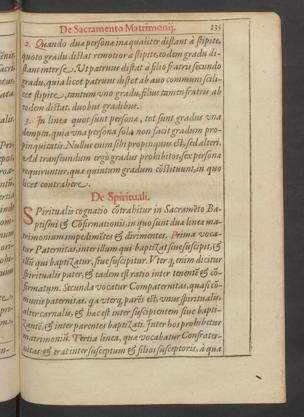 De Sacramento Matrimonij. 235
2. Quando due persone inæqualiter distant à stipite,
quoto gradu distat remotior à stipite, eodem gradu di-
stant inter se. Ut patruus distat à filio fratris secundo
gradu, quia licet patruus distet ab auo communi scili-
cet stipite, tantum vno gradu, filius tamen fratris ab
eodem distat, duobus gradibus.
3. In linea quot sunt persone, tot sunt gradus vna
dempta, quia vna persona sola non facit gradum pro-
pinquitatis. Nullus enim sibi propinquus est, sed alteri.
Ad transeundum ergò gradus prohibitos, sex persone
requiruntur, quæ quintum gradum cõstituunt, in quo
licet contrahere.
De Spirituali.
Spiritualis cognatio cõtrahitur in Sacramẽto Ba-
ptismi & Cõfirmationis, in quo sunt duæ lineæ ma-
trimonium impedimẽtes & dirimentes. Prima voca-
tur Paternitas, inter illum qui baptizat siue suscipit, &
illũ qui baptizatur, siue suscipitur. Vterq, enim dicitur
spiritualis pater, & eadem est ratio inter tenentẽ & cõ-
firmatum. Secunda vocatur Compaternitas, quasi cõ-
munis paternitas. qa vterq, parẽs est, vnus spiritualis,
alter carnalis, & hæc est inter suscipientem siue bapti-
zantẽ, & inter parentes baptizati. Inter hos prohibetur
matrimoniũ. Tertia linea, quæ vocabatur Confrater-
nitas: & erat inter susceptum & filios susceptoris, à qua